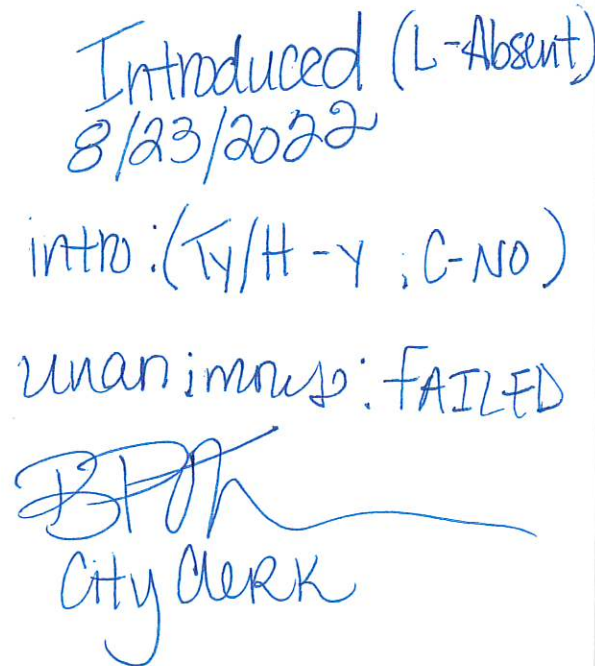 Introduced (L-Absent)
8/23/2022
intro: (Ty/H-Y ; C-NO)
unanimous: FAILED
City Clerk